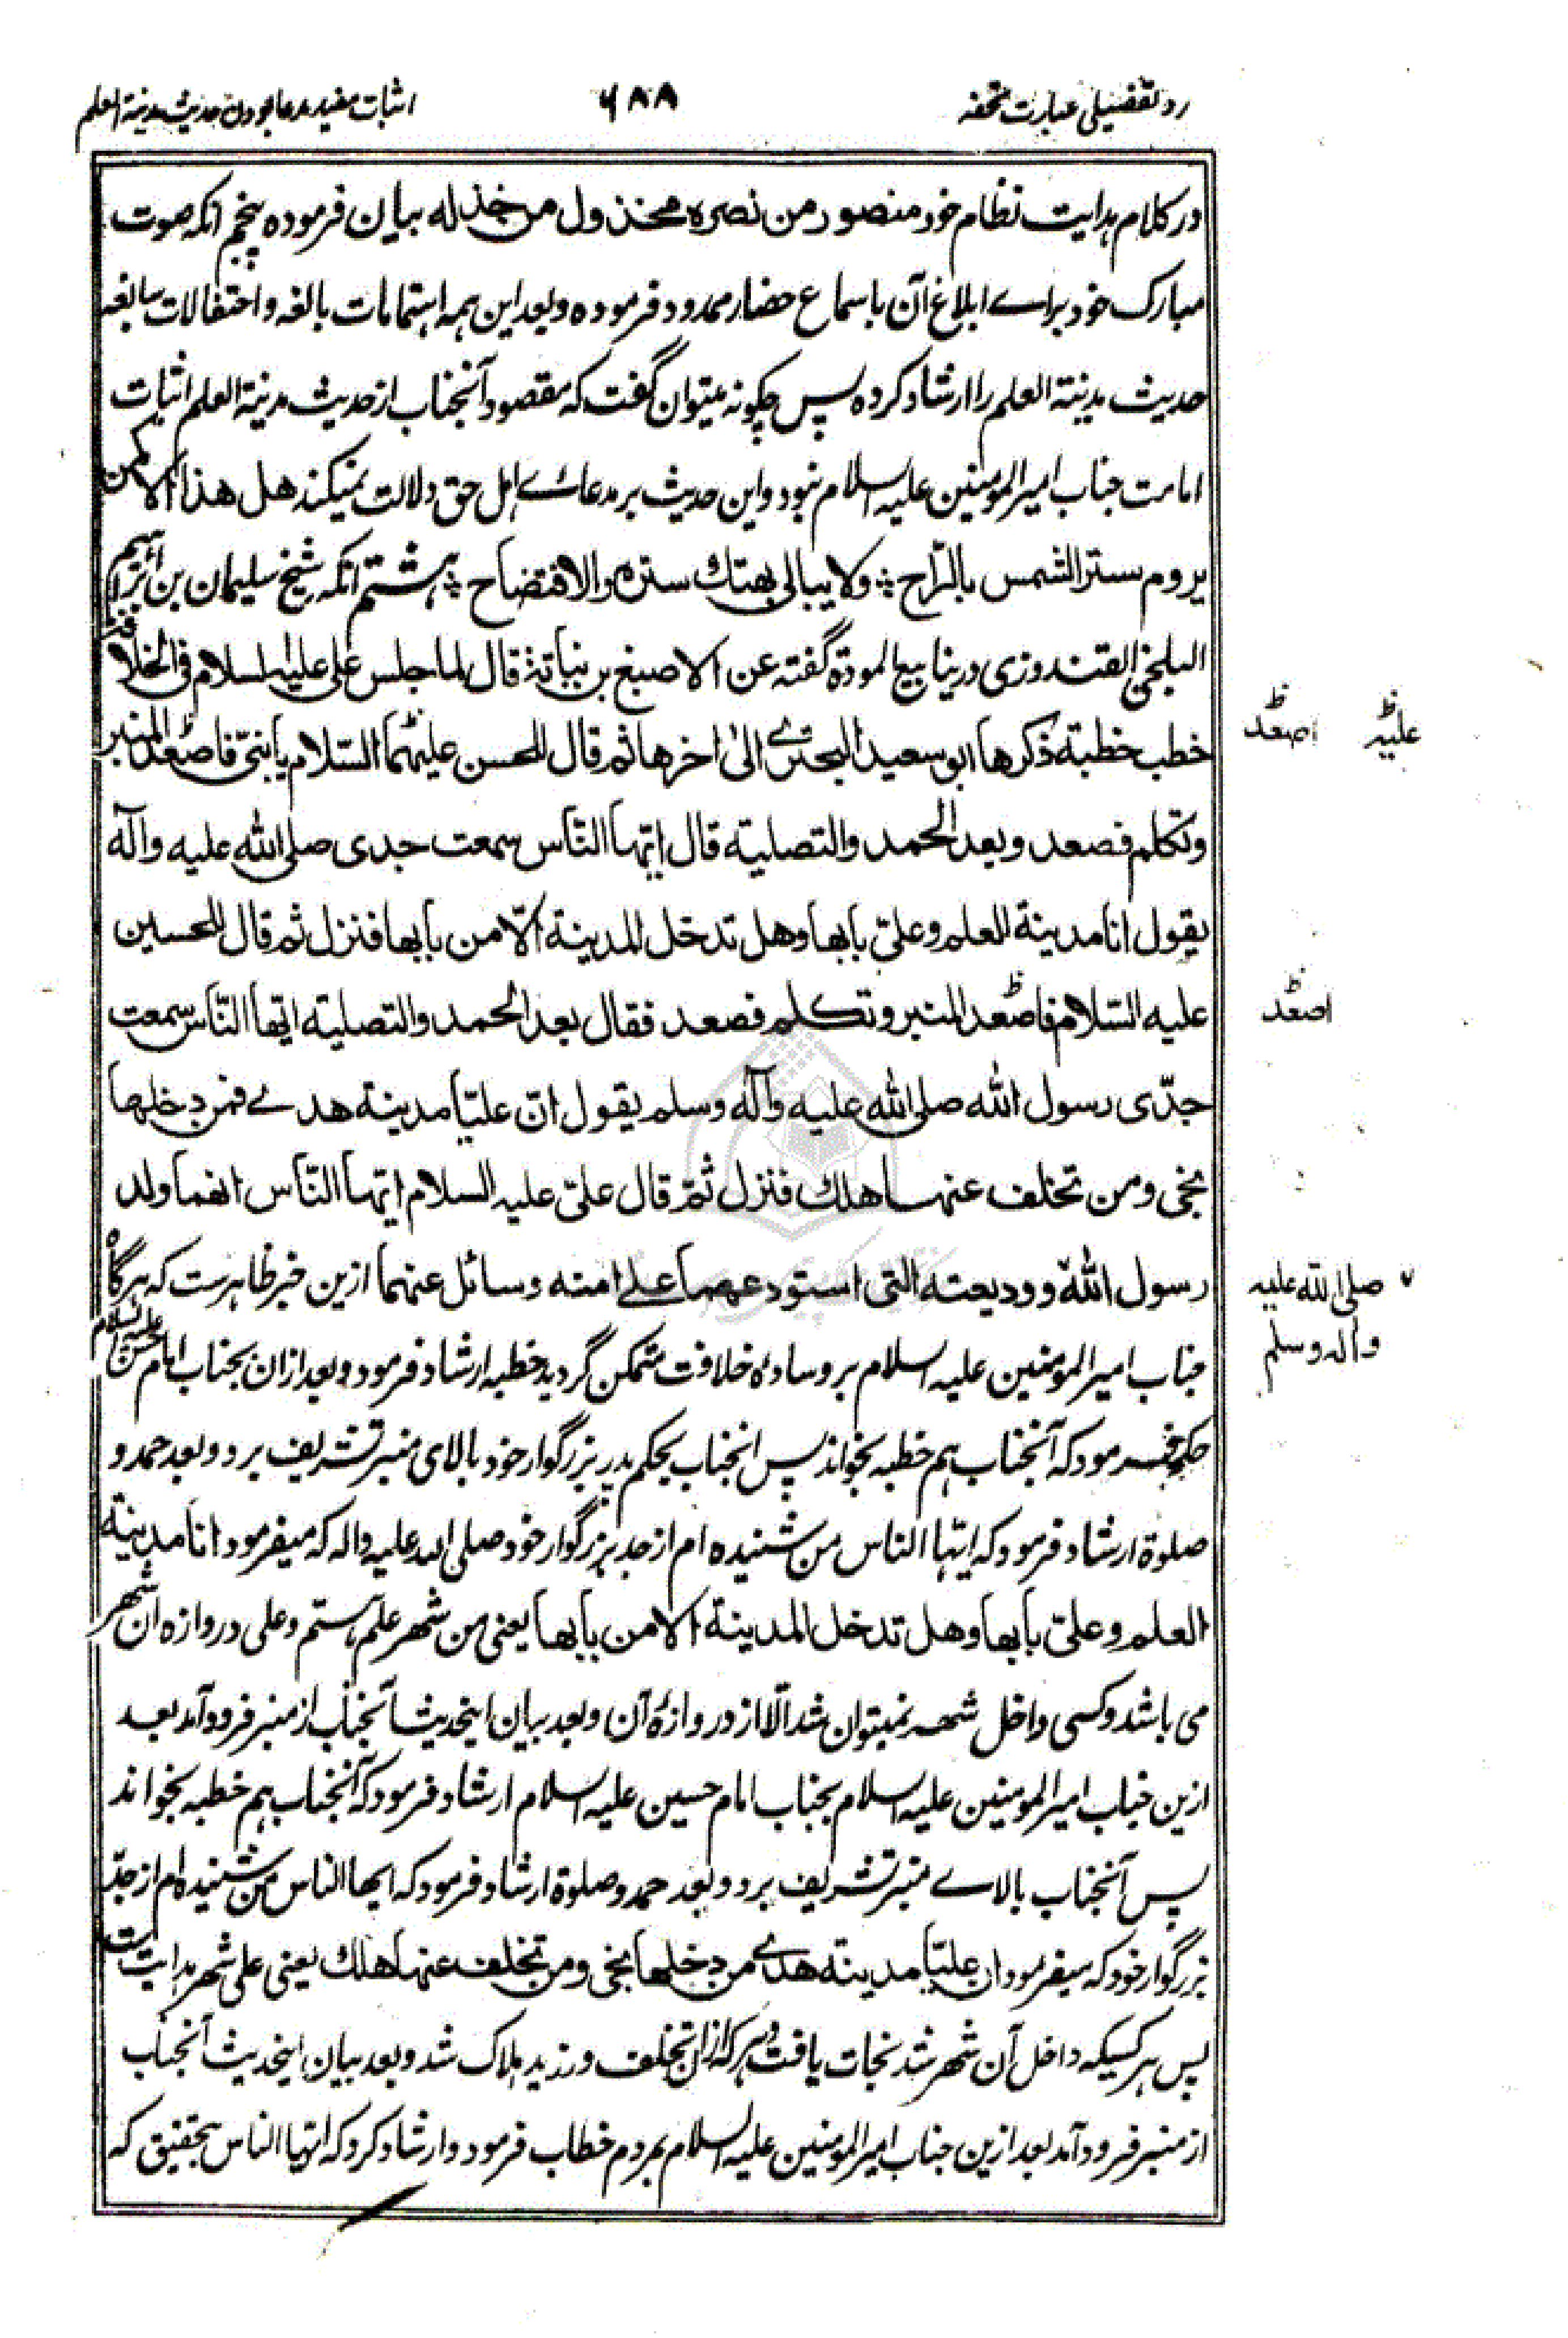 رد تفضیلی عبارت تحفه
۶۸۸
اثبات مفید مدعا بودن حدیث مدینة العلم
در کلام هدایت نظام خود منصور من نصره مخذول من خذله بیان فرموده پنجم آنکه صوت
مبارک خود برای ابلاغ آن باسماع حضار ممدود فرموده و بعد این همه اهتمامات بالغه و احتفالات سابغه
حدیث مدینة العلم را ارشاد کرده پس چگونه میتوان گفت که مقصود آنجناب از حدیث مدینة العلم اثبات
امامت جناب امیر المومنین علیه السلام نبود و این حدیث بر مدعائے اهل حق دلالت نمیکند هل هذا الا کمن
یروم ستر الشمس بالراح ولا یبالی بهتك ستره والافتضاح هشتم آنکه شیخ سلیمان بن ابراهیم
البلخی القندوزی در ینابیع المودة گفته عن الاصبغ بن نباتة قال لما جلس علی علیه السلام فی الخلافة
خطب خطبة ذکرها ابو سعید البحتری الی اخرها ثم قال للحسن علیهما السلام یا بنی فاصعد المنبر
علیه
اصعد
وتکلم فصعد وبعد الحمد والتصلیة قال ایها الناس سمعت جدی صلی الله علیه وآله
یقول انا مدینة العلم وعلی بابها وهل تدخل المدینة الا من بابها فنزل ثم قال للحسین
علیه السلام فاصعد المنبر وتکلم فصعد فقال بعد الحمد والتصلیة ایها الناس سمعت
اصعد
جدی رسول الله صلی الله علیه وآله وسلم یقول ان علیا مدینة هدی فمن دخلها
نجی ومن تخلف عنها هلك فنزل ثم قال علی علیه السلام ایها الناس انهما ولد
رسول الله وودیعته التی استودعهما علی امته وسائل عنهما ازین خبر ظاهرست که هرگاه
صلی الله علیه
وآله وسلم
جناب امیر المومنین علیه السلام بر وساده خلافت متمکن گردید خطبه ارشاد فرمود و بعد ازان بجناب امام حسن علیه السلام
حکم فرمود که آنجناب هم خطبه بخواند پس آنجناب بحکم پدر بزرگوار خود بالای منبر تشریف برد و بعد حمد و
صلوة ارشاد فرمود که ایها الناس من شنیده ام از جد بزرگوار خود صلی الله علیه واله که میفرمود انا مدینة
العلم وعلی بابها وهل تدخل المدینة الا من بابها یعنی من شهر علم هستم و علی دروازه آن شهر
می باشد و کسی داخل شهر نمیتوان شد الا از دروازهٔ آن و بعد بیان اینحدیث آنجناب از منبر فرود آمد بعد
ازین جناب امیر المومنین علیه السلام بجناب امام حسین علیه السلام ارشاد فرمود که آنجناب هم خطبه بخواند
پس آنجناب بالاے منبر تشریف برد و بعد حمد و صلوة ارشاد فرمود که ایها الناس من شنیده ام از جد
بزرگوار خود که میفرمود ان علیا مدینة هدی من دخلها نجی ومن تخلف عنها هلك یعنی علی شهر هدایت ست
پس هر کسیکه داخل آن شهر شد نجات یافت و هر که ازان تخلف ورزید هلاک شد و بعد بیان اینحدیث آنجناب
از منبر فرود آمد بعد ازین جناب امیر المومنین علیه السلام بمردم خطاب فرمود و ارشاد کرد که ایها الناس بتحقیق که